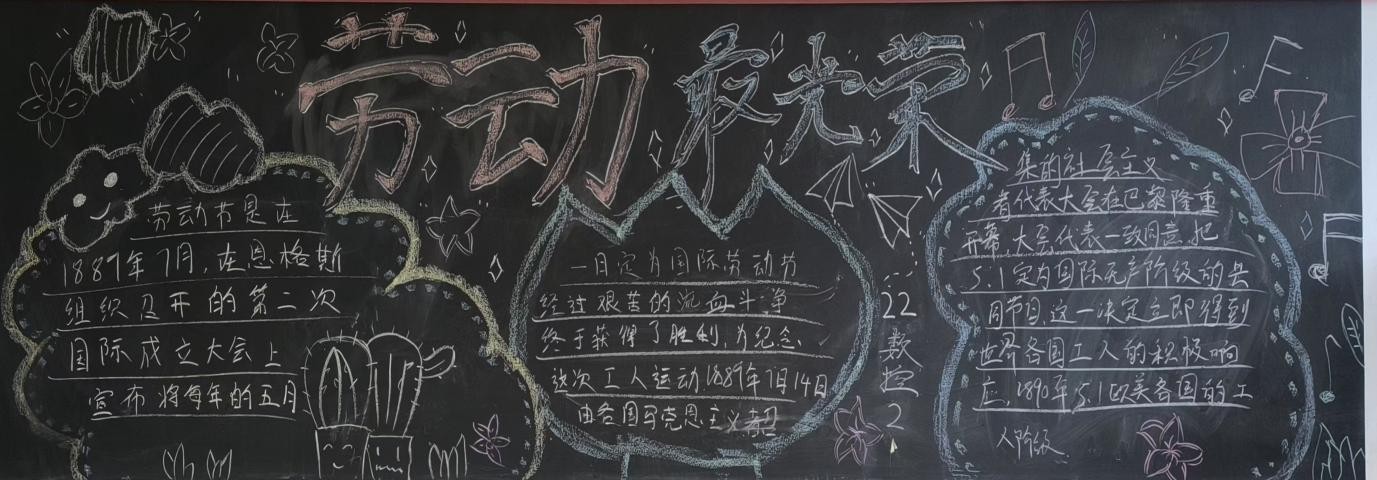 劳动最光荣
劳动节是在
1889年7月,在恩格斯
组织召开的第二次
国际成立大会上
宣布将每年的五月
一日定为国际劳动节
经过艰苦的流血斗争
终于获得了胜利,为纪念
这次工人运动1889年7月14日
由各国马克思主义者召
22
数
控
2
集的社会主义
者代表大会在巴黎隆重
开幕,大会代表一致同意,把
5.1定为国际无产阶级的共
同节日,这一决定立即得到
世界各国工人的积极响
应,1890年5.1欧美各国的工
人阶级